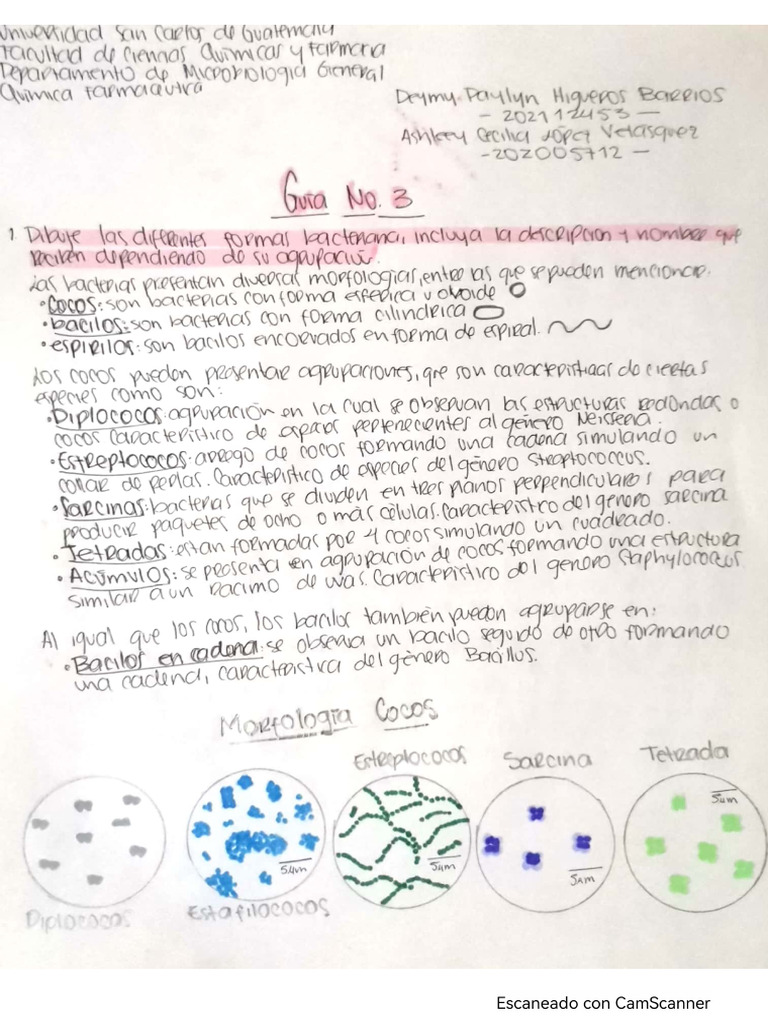 Universidad San Carlos de Guatemala
Facultad de Ciencias Químicas y Farmacia
Departamento de Microbiología General
Química Farmacéutica
Deymy Paylyn Higueros Barrios
- 202112453 -
Ashley Cecilia López Velásquez
- 202005712 -
Guía No. 3
1. Dibuje las diferentes formas bacteriana, incluya la descripción y nombre que
reciben dependiendo de su agrupación.
Las bacterias presentan diversas morfologías, entre las que se pueden mencionar:
• Cocos: son bacterias con forma esférica u ovoide
• bacilos: son bacterias con forma cilíndrica
• espirilos: son bacilos encorvados en forma de espiral.
Los cocos pueden presentar agrupaciones, que son características de ciertas
especies como son:
• Diplococos: agrupación en la cual se observan las estructuras redondas o
cocos característico de especies pertenecientes al género Neisseria.
• Estreptococos: arreglo de cocos formando una cadena simulando un
collar de perlas. Característico de especies del género Streptococcus.
• Sarcinas: bacterias que se dividen en tres planos perpendiculares para
producir paquetes de ocho o más células. Característico del género sarcina
• Tetradas: estan formadas por 4 cocos simulando un cuadrado.
• Acúmulos: se presenta en agrupación de cocos formando una estructura
similar a un racimo de uvas. Característico del género Staphylococcus
Al igual que los cocos, los bacilos también pueden agruparse en:
• Bacilos en cadena: se observa un bacilo seguido de otro formando
una cadena, característica del género Bacillus.
Morfología Cocos
Estreptococos
Sarcina
Tetrada
5µm
5µm
5µm
5µm
Diplococos
Estafilococos
Escaneado con CamScanner